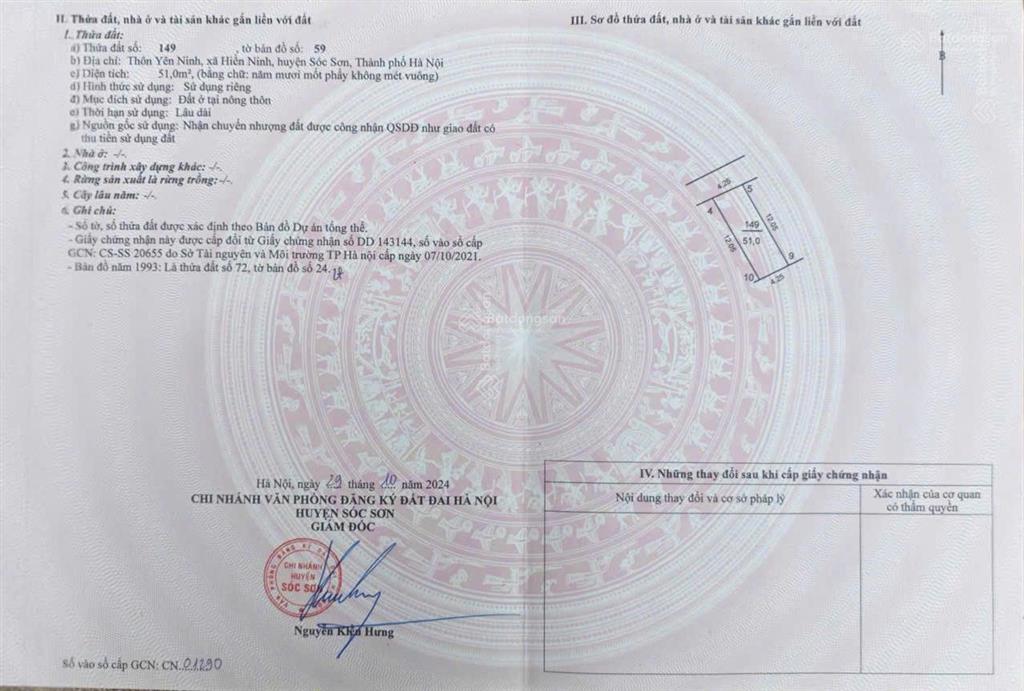 II. Thửa đất, nhà ở và tài sản khác gắn liền với đất
1. Thửa đất:
a) Thửa đất số: 149 , tờ bản đồ số: 59
b) Địa chỉ: Thôn Yên Ninh, xã Hiền Ninh, huyện Sóc Sơn, Thành phố Hà Nội
c) Diện tích: 51,0m², (bằng chữ: năm mươi mốt phẩy không mét vuông)
d) Hình thức sử dụng: Sử dụng riêng
đ) Mục đích sử dụng: Đất ở tại nông thôn
e) Thời hạn sử dụng: Lâu dài
g) Nguồn gốc sử dụng: Nhận chuyển nhượng đất được công nhận QSDĐ như giao đất có
thu tiền sử dụng đất
2. Nhà ở: -/-.
3. Công trình xây dựng khác: -/-.
4. Rừng sản xuất là rừng trồng: -/-.
5. Cây lâu năm: -/-.
6. Ghi chú:
- Số tờ, số thửa đất được xác định theo Bản đồ Dự án tổng thể.
- Giấy chứng nhận này được cấp đổi từ Giấy chứng nhận số DD 143144, số vào sổ cấp
GCN: CS-SS 20655 do Sở Tài nguyên và Môi trường TP Hà Nội cấp ngày 07/10/2021.
- Bản đồ năm 1993: Là thửa đất số 72, tờ bản đồ số 24.
Hà Nội, ngày 29 tháng 10 năm 2024
CHI NHÁNH VĂN PHÒNG ĐĂNG KÝ ĐẤT ĐAI HÀ NỘI
HUYỆN SÓC SƠN
GIÁM ĐỐC
CHI NHÁNH
HUYỆN
SÓC SƠN
Nguyễn Kiên Hưng
Số vào sổ cấp GCN: CN.01290
III. Sơ đồ thửa đất, nhà ở và tài sản khác gắn liền với đất
B
4,25
5
4
12,05
149
51,0
12,05
9
10
4,25
Batdongsan
IV. Những thay đổi sau khi cấp giấy chứng nhận
Nội dung thay đổi và cơ sở pháp lý
Xác nhận của cơ quan
có thẩm quyền